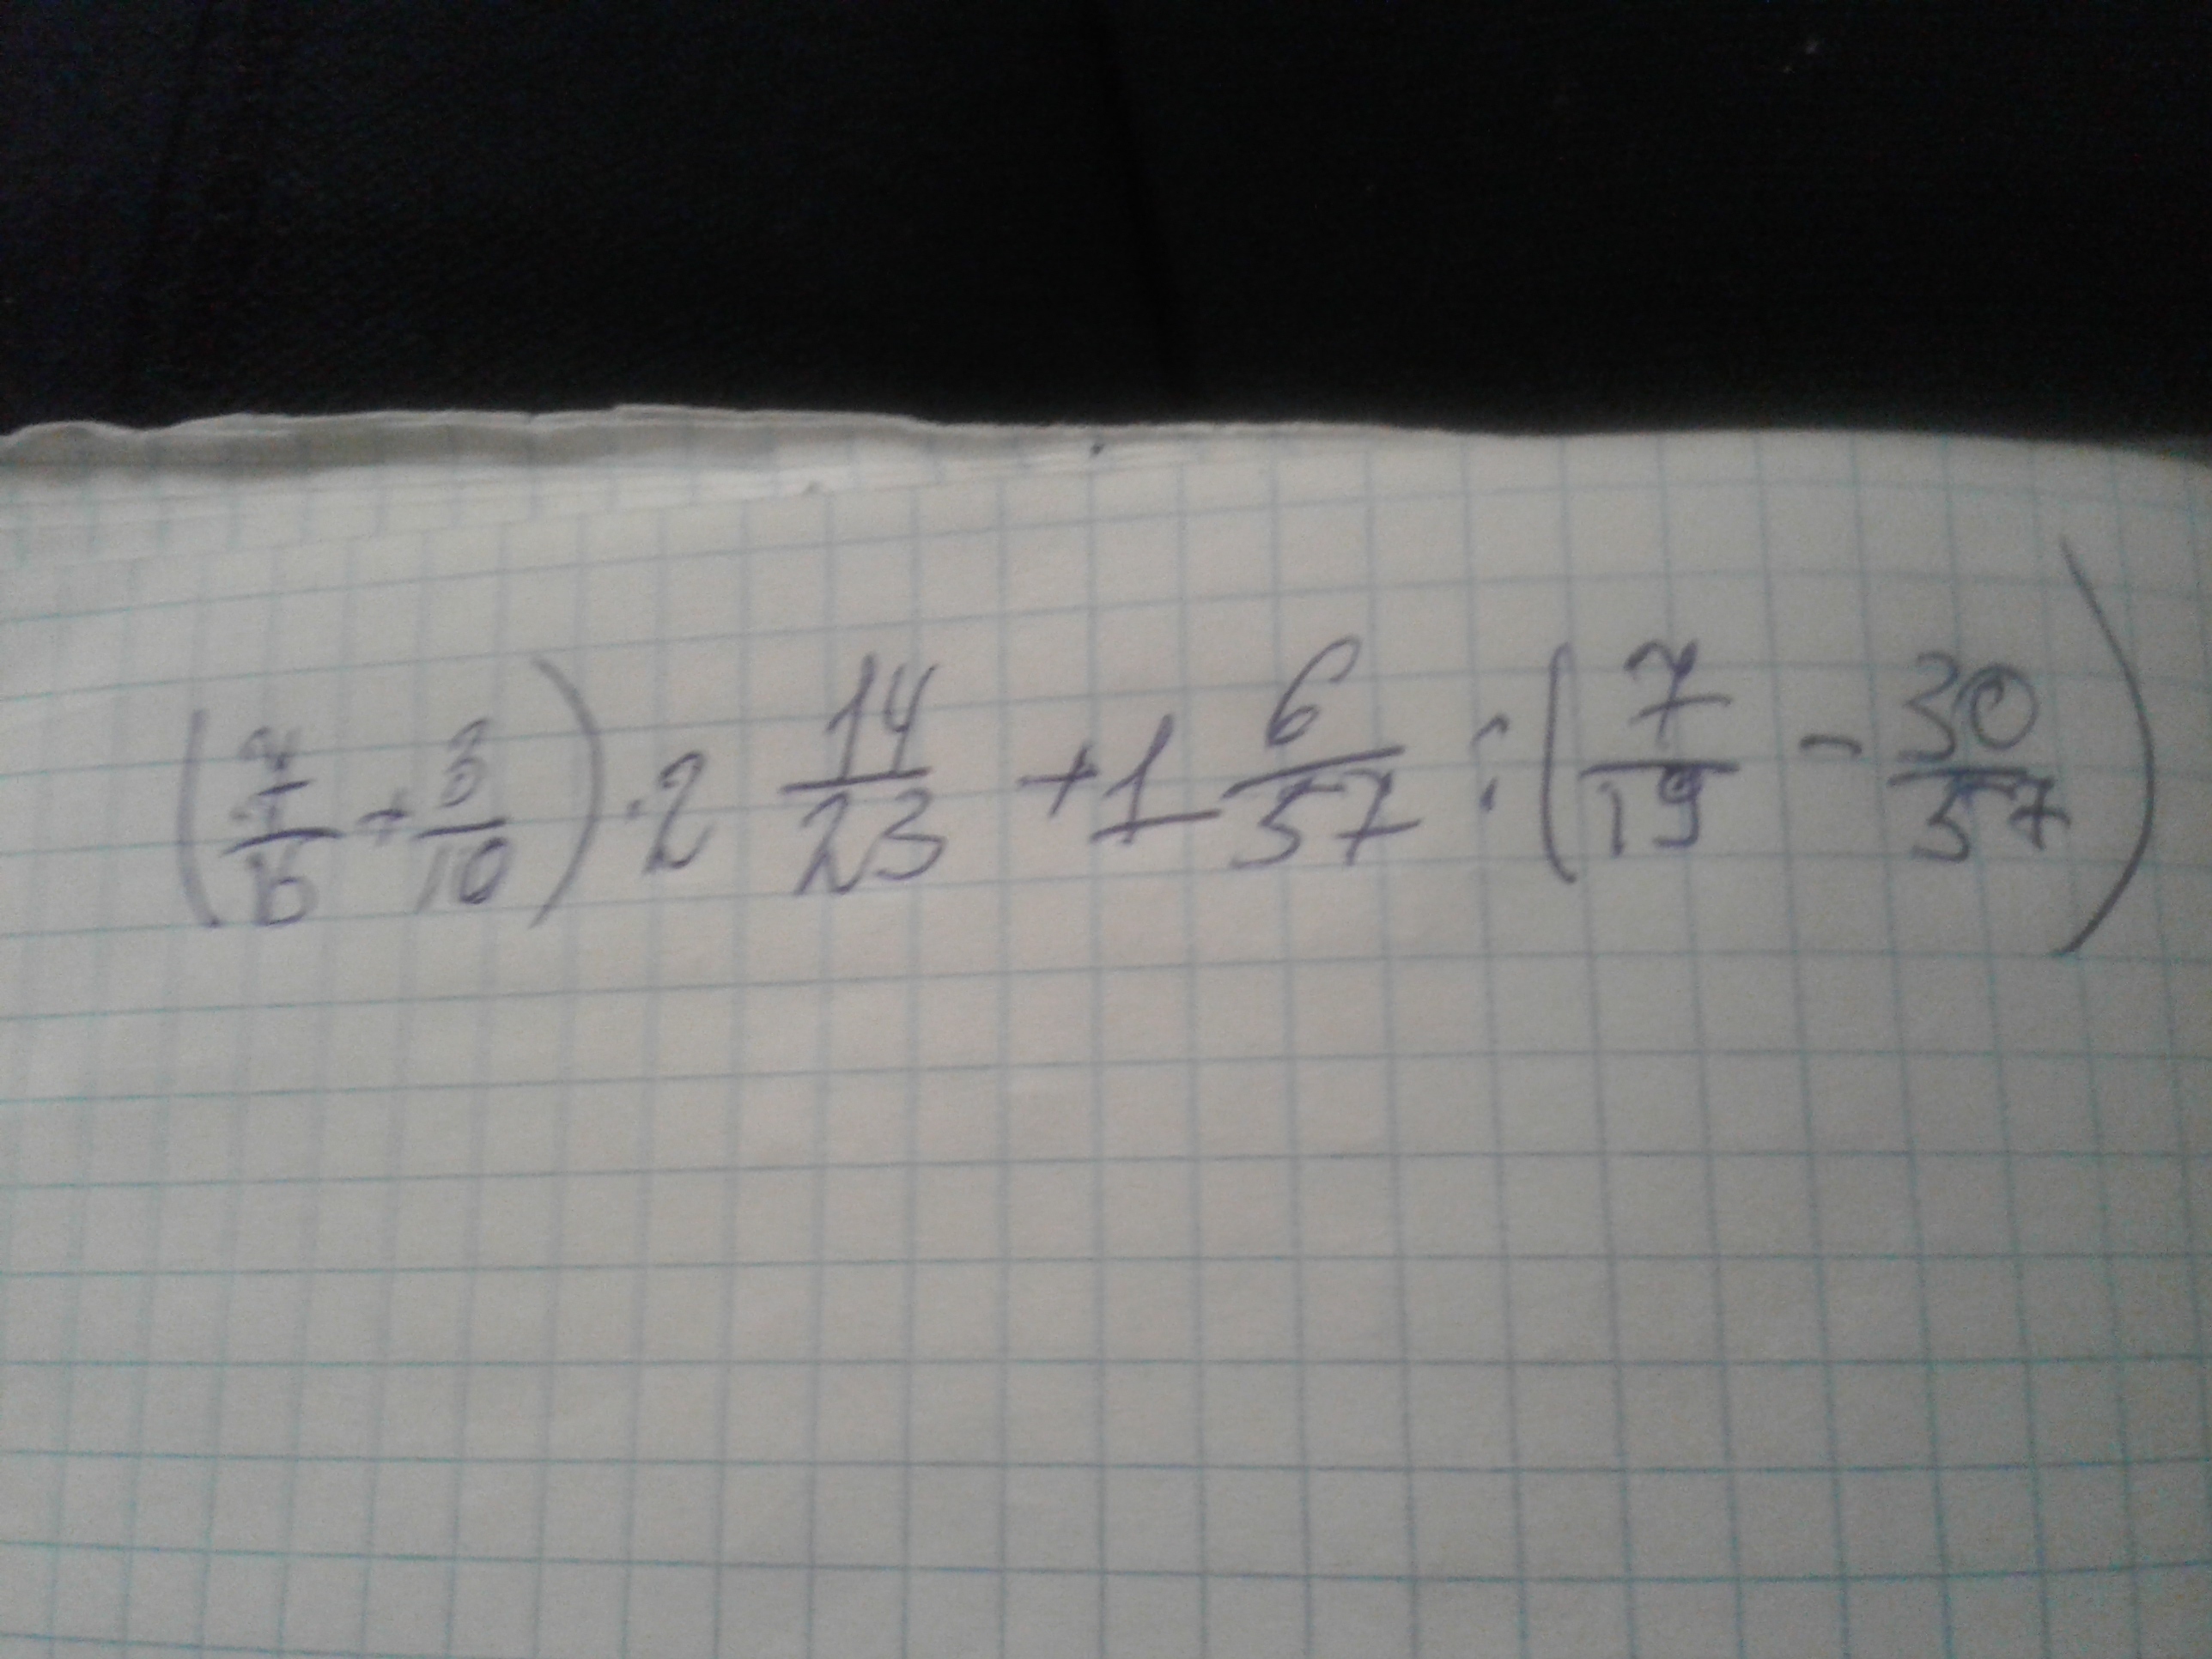 (7/16 + 3/10) · 2 14/23 + 1 6/57 : (7/19 - 30/57)